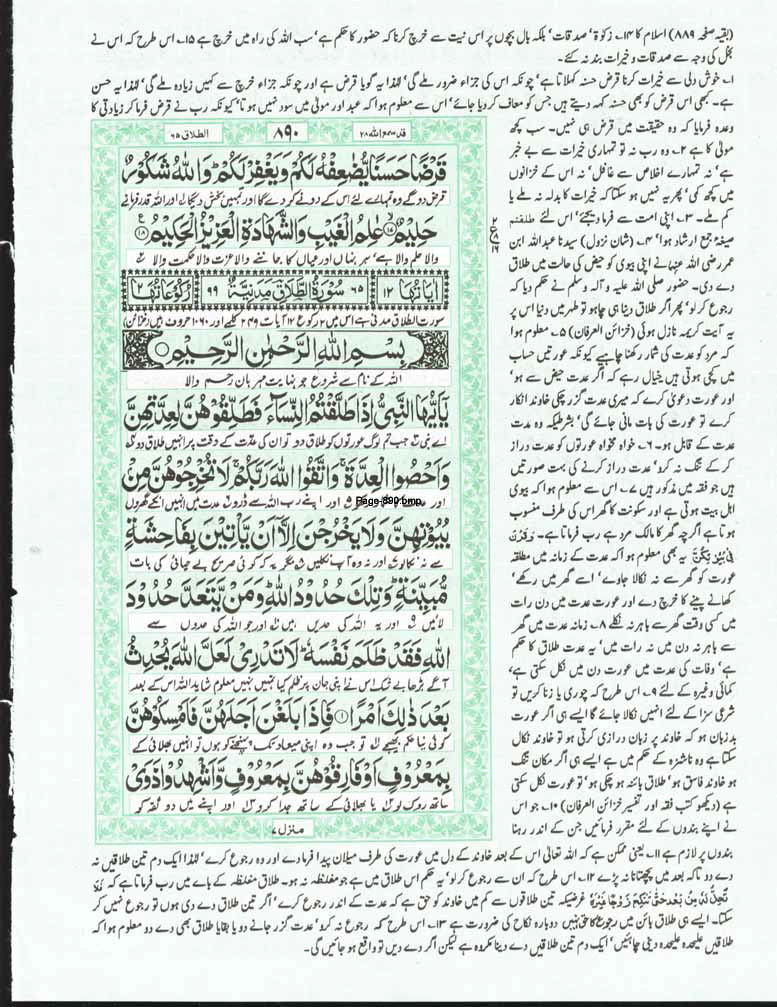 (بقیہ صفحہ ۸۸۹) اسلام کا ۱۴۔ زکوٰۃ' صدقات' بلکہ بال بچوں پر اس نیت سے خرچ کرنا کہ حضور کا حکم ہے' سب اللہ کی راہ میں خرچ ہے ۱۵۔ اس طرح کہ اس نے
بخل کی وجہ سے صدقات و خیرات بند نہ کئے۔
۱۔ خوش دلی سے خیرات کرنا قرض حسنہ کہلاتا ہے' چونکہ اس کی جزاء ضرور ملے گی' لہٰذا یہ گویا قرض ہے اور چونکہ جزاء خرچ سے کہیں زیادہ ملے گی' لہٰذا یہ حسن
ہے۔ کبھی اس قرض کو بھی حسنہ کہہ دیتے ہیں جس کو معاف کر دیا جائے' اس سے معلوم ہوا کہ عبد اور مولیٰ میں سود نہیں ہوتا' کیونکہ رب نے قرض فرما کر زیادتی کا
قد سمع اللہ ۲۸
۸۹۰
الطلاق ۶۵
قَرْضًا حَسَنًا يُّضٰعِفْهُ لَكُمْ وَيَغْفِرْ لَكُمْ ۭ وَاللّٰهُ شَكُوْرٌ
قرض دو گے وہ تمہارے لئے اس کے دونے کر دے گا اور تمہیں بخش دیگا اور اللہ قدر فرمانے
حَلِيْمٌ ۝۱۷ عٰلِمُ الْغَيْبِ وَالشَّهَادَةِ الْعَزِيْزُ الْحَكِيْمُ ۝۱۸
والا حلم والا ہے' ہر نہاں اور عیاں کا جاننے والا عزت والا حکمت والا
اٰيَاتُهَا ۱۲
۶۵ سُوْرَةُ الطَّلَاقِ مَدَنِيَّةٌ ۹۹
رُكُوْعَاتُهَا ۲
سورت الطلاق مدنی ہے اس میں ۲ رکوع ۱۲ آیات ۲۴۹ کلمے اور ۱۰۶۰ حروف ہیں (خزائن)
بِسْمِ اللّٰهِ الرَّحْمٰنِ الرَّحِيْمِ
اللہ کے نام سے شروع جو نہایت مہربان رحم والا
يٰٓاَيُّهَا النَّبِيُّ اِذَا طَلَّقْتُمُ النِّسَآءَ فَطَلِّقُوْهُنَّ لِعِدَّتِهِنَّ
اے نبی جب تم لوگ عورتوں کو طلاق دو تو ان کی عدت کے وقت پر انہیں طلاق دو
وَاَحْصُوا الْعِدَّةَ ۚ وَاتَّقُوا اللّٰهَ رَبَّكُمْ ۚ لَا تُخْرِجُوْهُنَّ مِنْ
اور اپنے رب اللہ سے ڈرو عدت میں انہیں انکے گھروں
Page-890.bmp
بُيُوْتِهِنَّ وَلَا يَخْرُجْنَ اِلَّآ اَنْ يَّاْتِيْنَ بِفَاحِشَةٍ
سے نہ نکالو اور نہ وہ آپ نکلیں مگر یہ کہ کوئی صریح بے حیائی کی بات
مُّبَيِّنَةٍ ۭ وَتِلْكَ حُدُوْدُ اللّٰهِ ۭ وَمَنْ يَّتَعَدَّ حُدُوْدَ
لائیں اور یہ اللہ کی حدیں ہیں اور جو اللہ کی حدوں سے
اللّٰهِ فَقَدْ ظَلَمَ نَفْسَهٗ ۭ لَا تَدْرِيْ لَعَلَّ اللّٰهَ يُحْدِثُ
آگے بڑھا بے شک اس نے اپنی جان پر ظلم کیا تمہیں نہیں معلوم شاید اللہ اس کے بعد
بَعْدَ ذٰلِكَ اَمْرًا ۝۱ فَاِذَا بَلَغْنَ اَجَلَهُنَّ فَاَمْسِكُوْهُنَّ
کوئی نیا حکم بھیجے تو جب وہ اپنی میعاد تک پہنچنے کو ہوں تو انہیں بھلائی کے
بِمَعْرُوْفٍ اَوْ فَارِقُوْهُنَّ بِمَعْرُوْفٍ وَّاَشْهِدُوْا ذَوَيْ
ساتھ روک لو یا بھلائی کے ساتھ جدا کرو اور اپنے میں دو ثقہ کو
منزل ۷
وعدہ فرمایا کہ وہ حقیقت میں قرض ہی نہیں۔ سب کچھ
مولیٰ کا ہے ۲۔ وہ رب نہ تو تمہاری خیرات سے بے خبر
ہے' نہ تمہارے اخلاص سے غافل' نہ اس کے خزانوں
میں کچھ کمی' پھر یہ نہیں ہو سکتا کہ خیرات کا بدلہ نہ ملے یا
کم ملے۔ ۳۔ اپنی امت سے فرما دیجئے' اس لئے طلقتم
صیغہ جمع ارشاد ہوا' ۴۔ (شان نزول) سیدنا عبداللہ ابن
عمر رضی اللہ عنہما نے اپنی بیوی کو حیض کی حالت میں طلاق
دے دی۔ حضور صلی اللہ علیہ و آلہ وسلم نے حکم دیا کہ
رجوع کر لو' پھر اگر طلاق دینا ہی چاہو تو طہر میں دینا اس پر
یہ آیت کریمہ نازل ہوئی (خزائن العرفان) ۵۔ معلوم ہوا
کہ مرد کو عدت کی شمار رکھنا چاہیے کیونکہ عورتیں حساب
میں کچی ہوتی ہیں خیال رہے کہ اگر عدت حیض سے ہو'
اور عورت دعویٰ کرے کہ میری عدت گزر چکی خاوند انکار
کرے تو عورت کی بات مانی جائے گی' بشرطیکہ وہ مدت
عدت کے قابل ہو۔ ۶۔ خواہ مخواہ عورتوں کو عدت دراز
کر کے تنگ نہ کرو' عدت دراز کرنے کی بہت صورتیں
ہیں جو فقہ میں مذکور ہیں ۷۔ اس سے معلوم ہوا کہ بیوی
اہل بیت ہوتی ہے اور سکونت کا گھر اس کی طرف منسوب
ہوتا ہے اگرچہ گھر کا مالک مرد ہے رب فرماتا ہے۔ وَقَرْنَ
فِیْ بُیُوْتِکُنَّ یہ بھی معلوم ہوا کہ عدت کے زمانہ میں مطلقہ
عورت کو گھر سے نہ نکالا جاوے' اسے گھر میں رکھے'
کھانے پینے کا خرچ دے اور عورت عدت میں دن رات
میں کسی وقت گھر سے باہر نہ نکلے ۸۔ زمانہ عدت میں گھر
سے باہر نہ دن میں نہ رات میں' یہ عدت طلاق کا حکم
ہے' وفات کی عدت میں عورت دن میں نکل سکتی ہے'
کمائی وغیرہ کے لئے ۹۔ اس طرح کہ چوری یا زنا کریں تو
شرعی سزا کے لئے انہیں نکالا جائے گا ایسے ہی اگر عورت
بد زبان ہو کہ خاوند پر زبان درازی کرتی ہو تو خاوند نکال
سکتا ہے وہ ناشزہ کے حکم میں ہے ایسے ہی اگر مکان تنگ
ہو خاوند فاسق ہو' طلاق بائنہ ہو چکی ہو' تو عورت نکل سکتی
ہے (دیکھو کتب فقہ اور تفسیر خزائن العرفان) ۱۰۔ جو اس
نے اپنے بندوں کے لئے مقرر فرمائیں جن کے اندر رہنا
بندوں پر لازم ہے ۱۱۔ یعنی ممکن ہے کہ اللہ تعالیٰ اس کے بعد خاوند کے دل میں عورت کی طرف میلان پیدا فرما دے اور وہ رجوع کرے' لہٰذا ایک دم تین طلاقیں نہ
دے دو تا کہ بعد میں پچھتانا نہ پڑے ۱۲۔ اس طرح کہ ان سے رجوع کر لو' یہ حکم اس طلاق میں ہے جو مغلظہ نہ ہو۔ طلاق مغلظہ کے بارے میں رب فرماتا ہے کہ فَلَا
تَحِلُّ لَهٗ مِنْ بَعْدُ حَتّٰى تَنْكِحَ زَوْجًا غَيْرَهٗ غرضیکہ تین طلاقوں سے کم میں خاوند کو حق ہے کہ عدت کے اندر رجوع کرے' اگر تین طلاق دے دی ہوں تو رجوع نہیں کر
سکتا۔ ایسے ہی طلاق بائن میں رجوع کا حق نہیں دوبارہ نکاح کی ضرورت ہے ۱۳۔ اس طرح کہ رجوع نہ کرو' عدت گزر جانے دو یا بقایا طلاق بھی دے دو معلوم ہوا کہ
طلاقیں علیحدہ علیحدہ دینی چاہئیں' ایک دم تین طلاقیں دے دینا مکروہ ہے لیکن اگر دے دیں تو واقع ہو جائیں گی۔